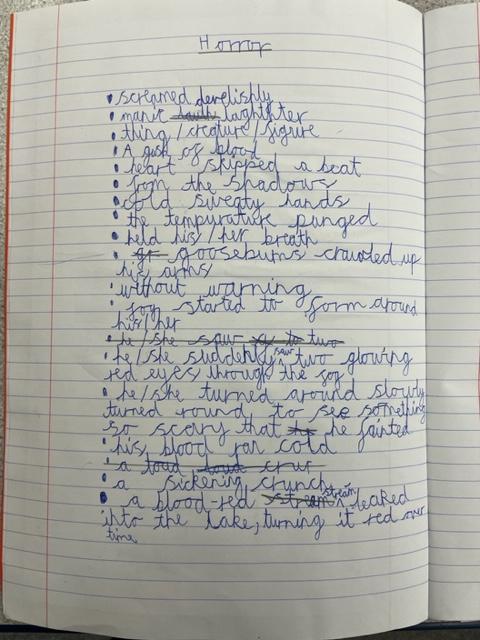 Horror
• screamed derelishly
• manic laughter
• thing / creature / figure
• A gush of blood
• heart skipped a beat
• from the shadows
• cold sweaty hands
• the tempurature punged
• held his / her breath
• goosebums crawled up
his arms
• without warning
• fog started to form around
his/her
• he/she saw
• he/she suddenly saw two glowing
red eyes through the fog
• he/she turned around slowly
turned round, to see something
so scary that he fainted
• his blood ran cold
• a
• a sickening crunch
• a blood-red stream leaked
into the lake, turning it red over
time